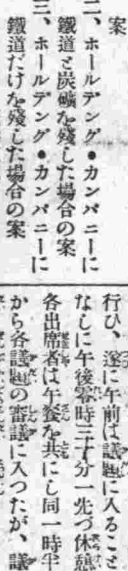 案
二、ホールデング・カンパニーに
鐵道と炭礦を殘した場合の案
三、ホールデング・カンパニーに
鐵道だけを殘した場合の案
行ひ、遂に午前は議題に入ること
なしに午後零時三十分一先づ休憩
各出席者は午餐を共にし同一時半
から各議題の審議に入つたが、議